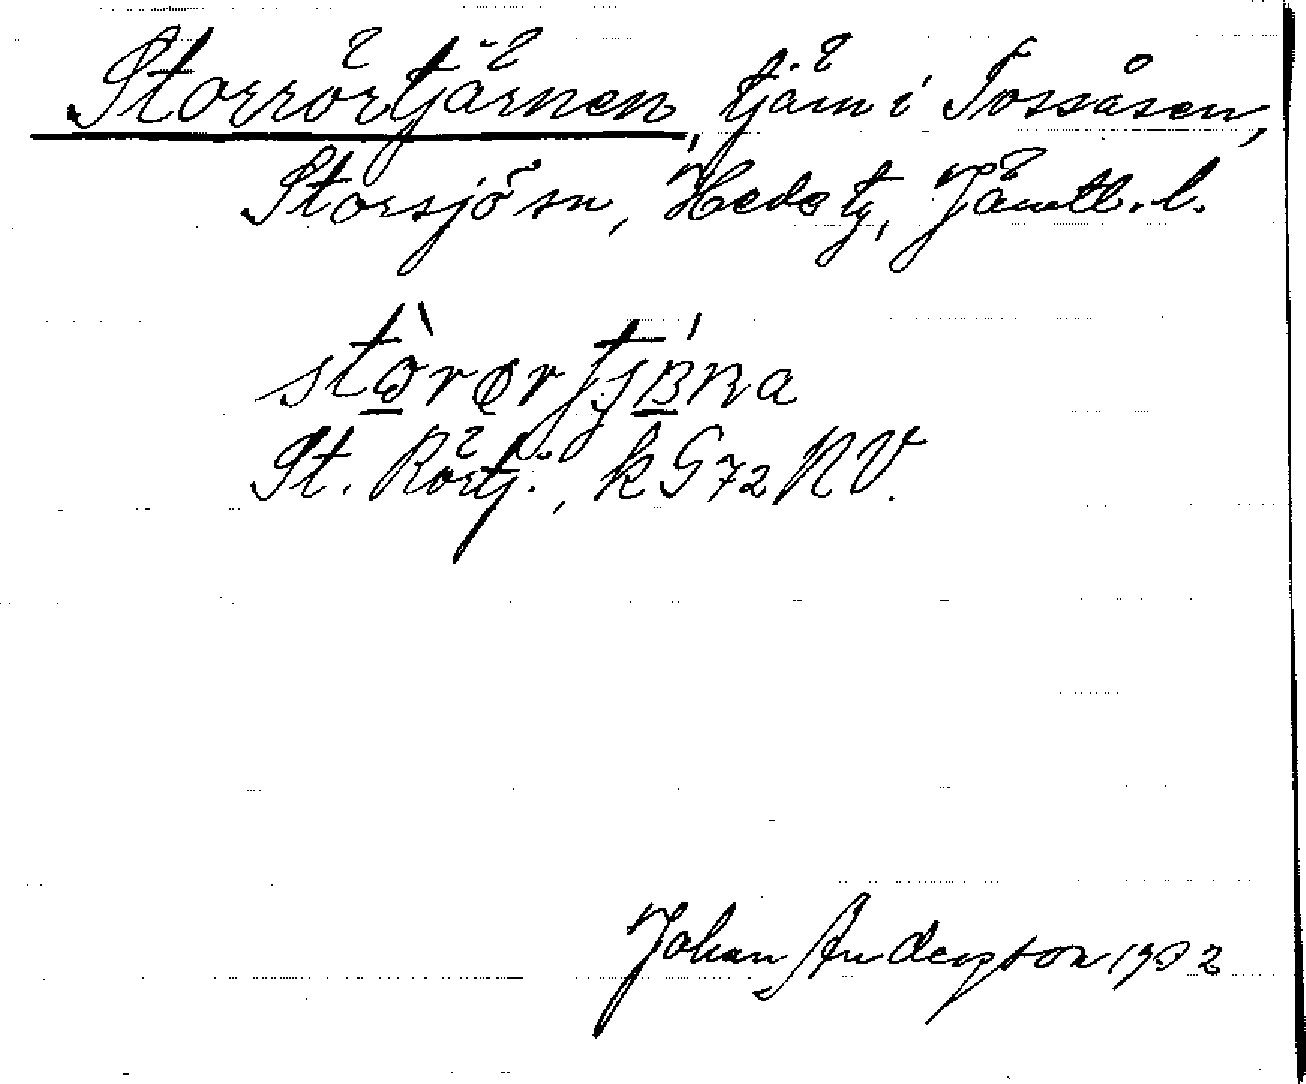 Storrörtjärnen, tjärn i Tossåsen,
Storsjö sn, Hede tg, Jämtl. l.
stòrørtʃɜ́ɴa
St. Rörtj., k G 72 NV.
Johan Anderzson 1932